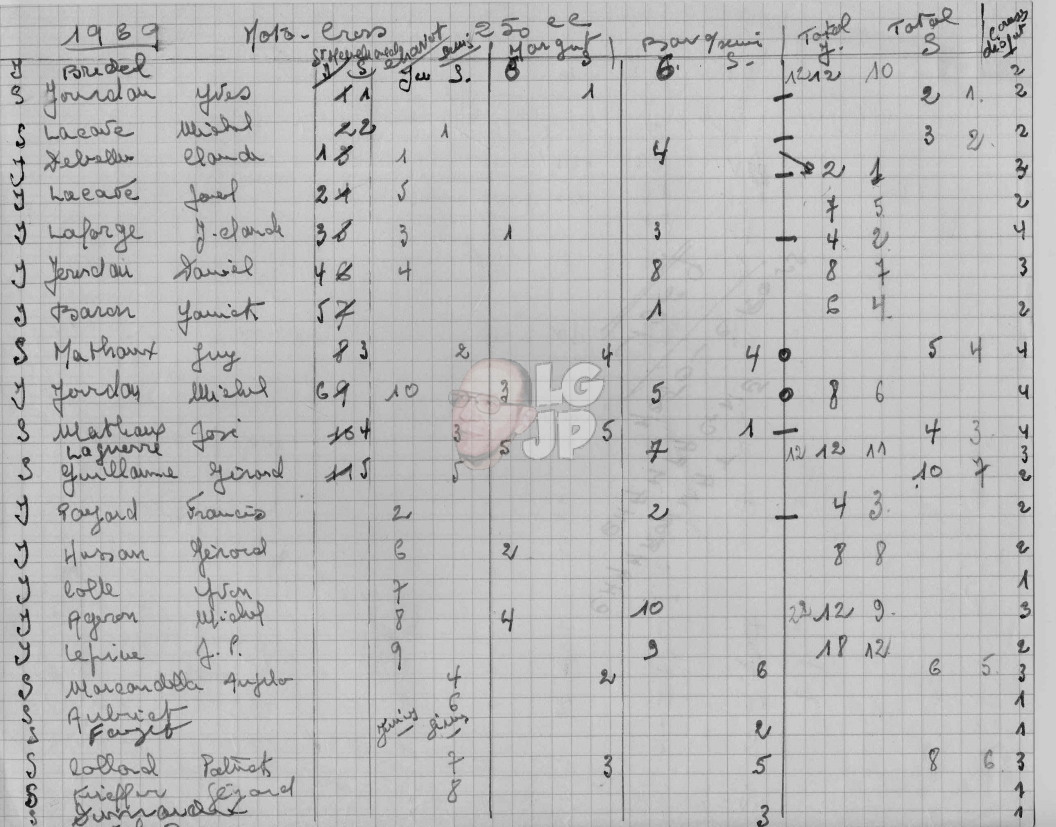 1969 Moto-Cross 250 cc Total J. Total S
J S Ju S. Margut J S Bar J S.
J Bridel 6 6. 12 12 10 2
S Jourdan Yves 1 1 1 – 2 1. 2
S Lacave Michel 2 2 1 – 3 2 2
J Claude 1 3 1 4 – 2 1 3
J Lacave Joel 2 4 5 7 5 2
J Laforge J. Claude 3 8 3 1 3 – 4 2 4
J Jourdan Daniel 4 6 4 8 8 7 3
J Baron Yanick 5 7 1 6 4 2
S Mathaux Guy 8 3 2 4 4 • 5 4 4
J Jourdan Michel 6 9 10 3 5 • 8 6 4
S Mathaux José 10 4 3 5 1 – 4 3 4
Laguerre 5 7 12 12 11 3
S Guillaume Gérard 11 5 5 10 7 2
J Payard Francis 2 2 – 4 3 2
J Husson Gérard 6 2 8 8 2
J Colle Yvon 7 1
J Ageron Michel 8 4 10 22 12 9. 3
J Lepine J. P. 9 9 18 12 2
S Marcandella Angelo 4 2 6 6 5. 3
S Aubriet 6 1
S 2 1
S Collard Patrick 7 3 5 8 6 3
S Kieffer Gérard 8 1
S 3 1
LG
JP